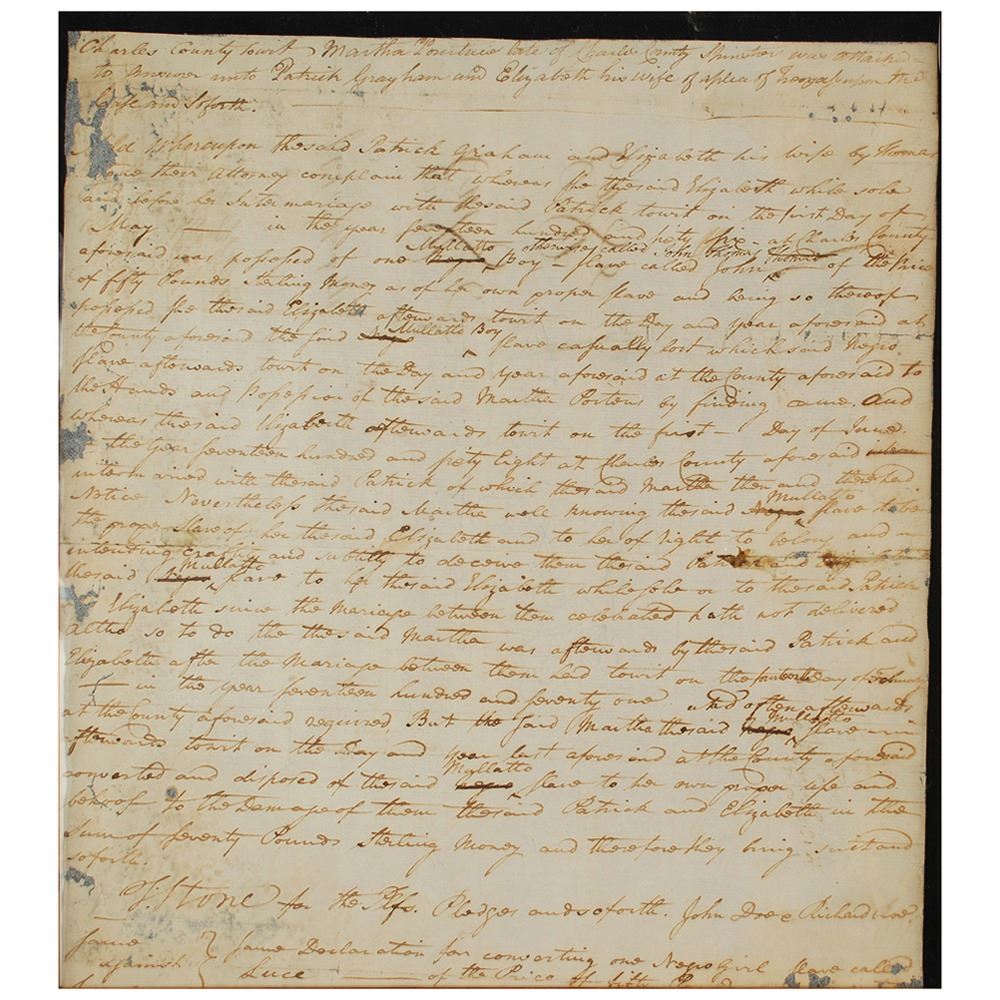 Charles County towit Martha late of Charles County Spinster was attached
to Answer unto Patrick Grayham and Elizabeth his wife of a plea of trespass upon the
Case and soforth.
And Whereupon the said Patrick Graham and Elizabeth his wife by Thomas
Stone their Attorney complain that whereas she the said Elizabeth while sole
and before her Intermariage with the said Patrick towit on the first Day of
May — in the year seventeen hundred and sixty six — at Charles County
Mullatto otherwise called John Thomas
aforesaid was possessed of one Negro Boy — slave called John of the Price
of fifty Pounds Sterling Money as of her own proper slave and being so thereof
possessed she the said Elizabeth afterwards towit on the Day and year aforesaid at
Mullatto Boy
the County aforesaid the said slave casually lost which said Negro
slave afterwards towit on the Day and Year aforesaid at the County aforesaid to
the Hands and Possession of the said Martha Porteus by finding came. And
whereas the said Elizabeth afterwards towit on the first — Day of June
in the Year seventeen hundred and sixty Eight at Charles County aforesaid
intermarried with the said Patrick of which the said Martha then and there had
Mullatto
Notice Nevertheless the said Martha well knowing the said Negro slave to be
the proper Slave of her the said Elizabeth and to her of right to belong and —
intending craftily and subtilly to deceive them the said Patrick and
Mullatto
the said Negro slave to her the said Elizabeth while sole or to the said Patrick
Elizabeth since the Mariage between them celebrated hath not delivered
Altho so to do the the said Martha was afterwards by the said Patrick and
Elizabeth after the Mariage between them had towit on the Day of
— in the year seventeen hundred and seventy one and often afterwards
Mullatto
at the County aforesaid required, But the said Martha the said Negro slave —
afterwards towit on the Day and year last aforesaid at the County aforesaid
Mullatto
converted and disposed of the said Negro slave to her own proper use and
behoof to the Damage of them the said Patrick and Elizabeth in the
Sum of seventy Pounds Sterling Money and therefore they bring suit and
soforth.
T Stone for the Plfs. Pledges and soforth. John Doe & Richard Roe
Same
against } Same Declaration for converting one Negro Girl slave called
Luce — of the Price of fifty